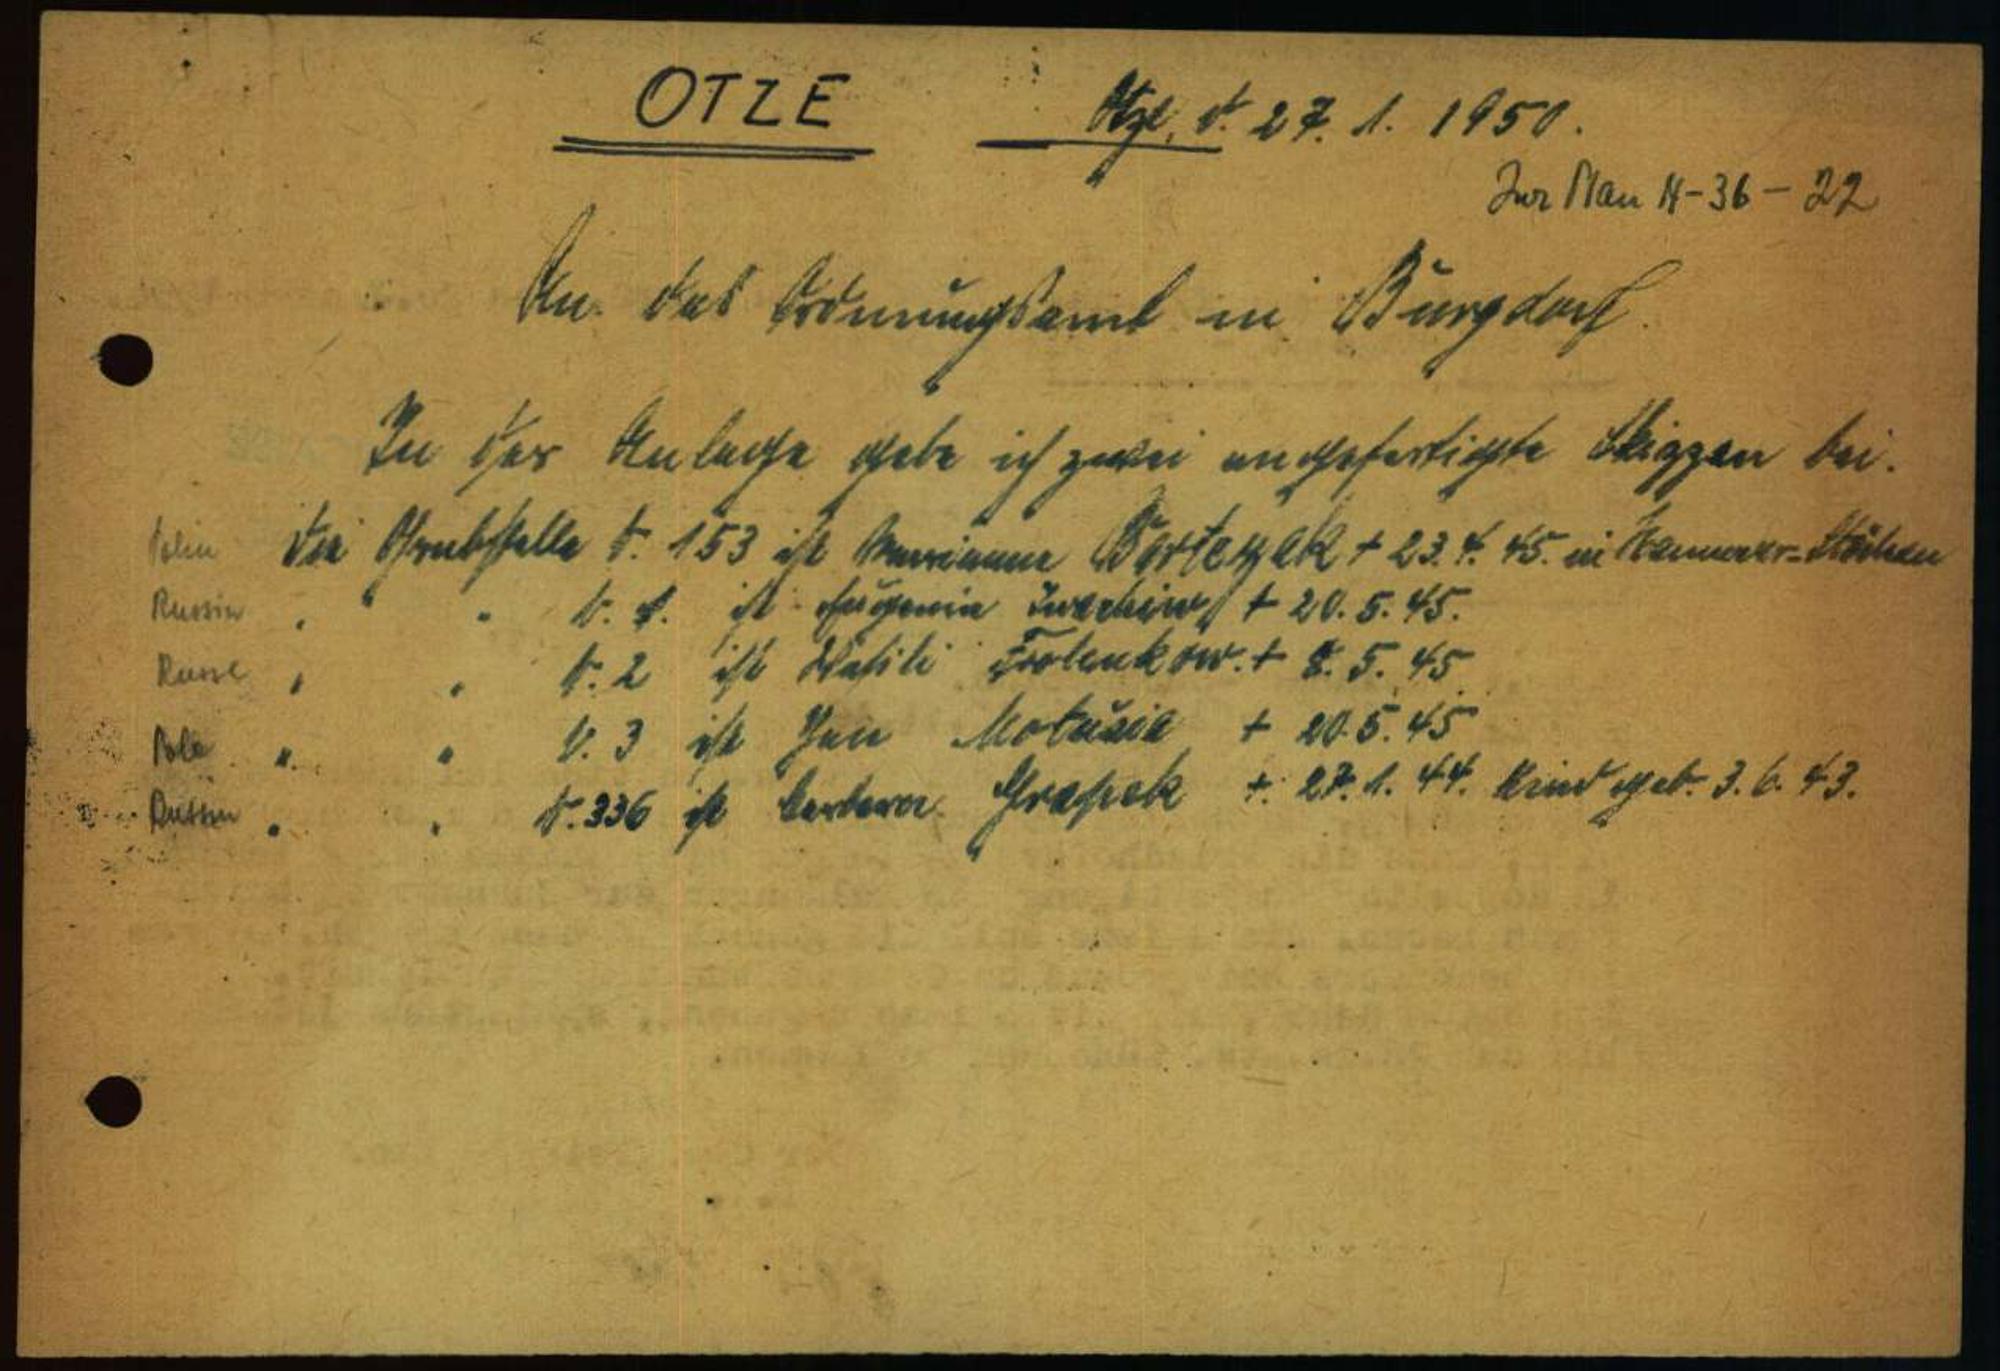 OTZE
Otze, d. 27. 1. 1950.
Zur Plan H-36-22
An das Ordnungsamt in Burgdorf.
In der Anlage gebe ich zwei angefertigte Skizzen bei.
Polin Die Grabstelle N. 153 ist Marianne Bartczak + 23. 4. 45. in Hannover-Stöcken
Russin " " N. 1. ist Eugenia + 20. 5. 45.
Russe " " N. 2 ist Wasili Frolenkow. + 8. 5. 45
Pole " " N. 3 ist Jan Motusia + 20. 5. 45
Russin " " N. 336 ist Barbara + 27. 1. 44. Kind geb. 3. 6. 43.